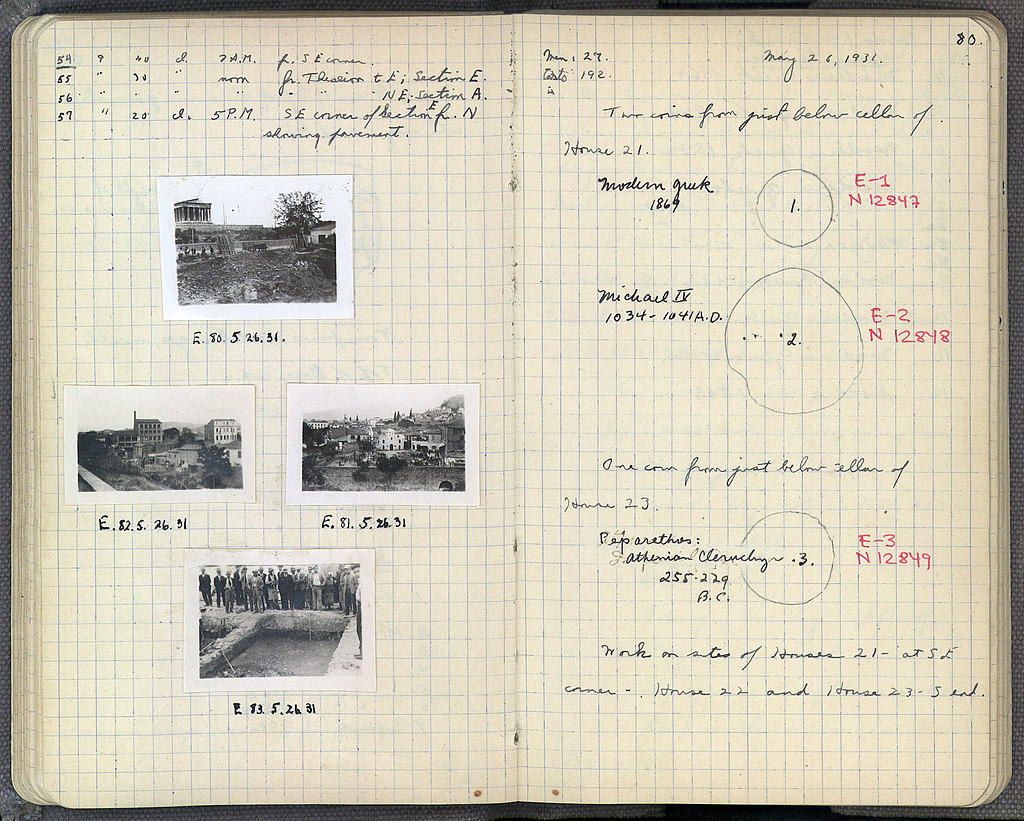 54 9 40 d. 7 A.M. fr. S E corner.
55 " 30 " noon fr. Theseion to E; Section E.
56 " " " " " " NE; Section A.
57 " 20 d. 5 P.M. SE corner of Section E fr. N
showing pavement.
E. 80. 5. 26. 31.
E. 82. 5. 26. 31
E. 81. 5. 26. 31
E 83. 5. 26 31
80.
Men: 27. May 26, 1931.
Carts: 192.
Two coins from just below cellar of
House 21.
Modern greek
1869
1.
E-1
N 12847
Michael IV
1034-1041 A.D.
2.
E-2
N 12848
One coin from just below cellar of
House 23.
Peparethos:
Athenian Cleruchy
255-229
B.C.
.3.
E-3
N 12849
Work on sites of Houses 21- at S E
corner -. House 22 and House 23- S end.